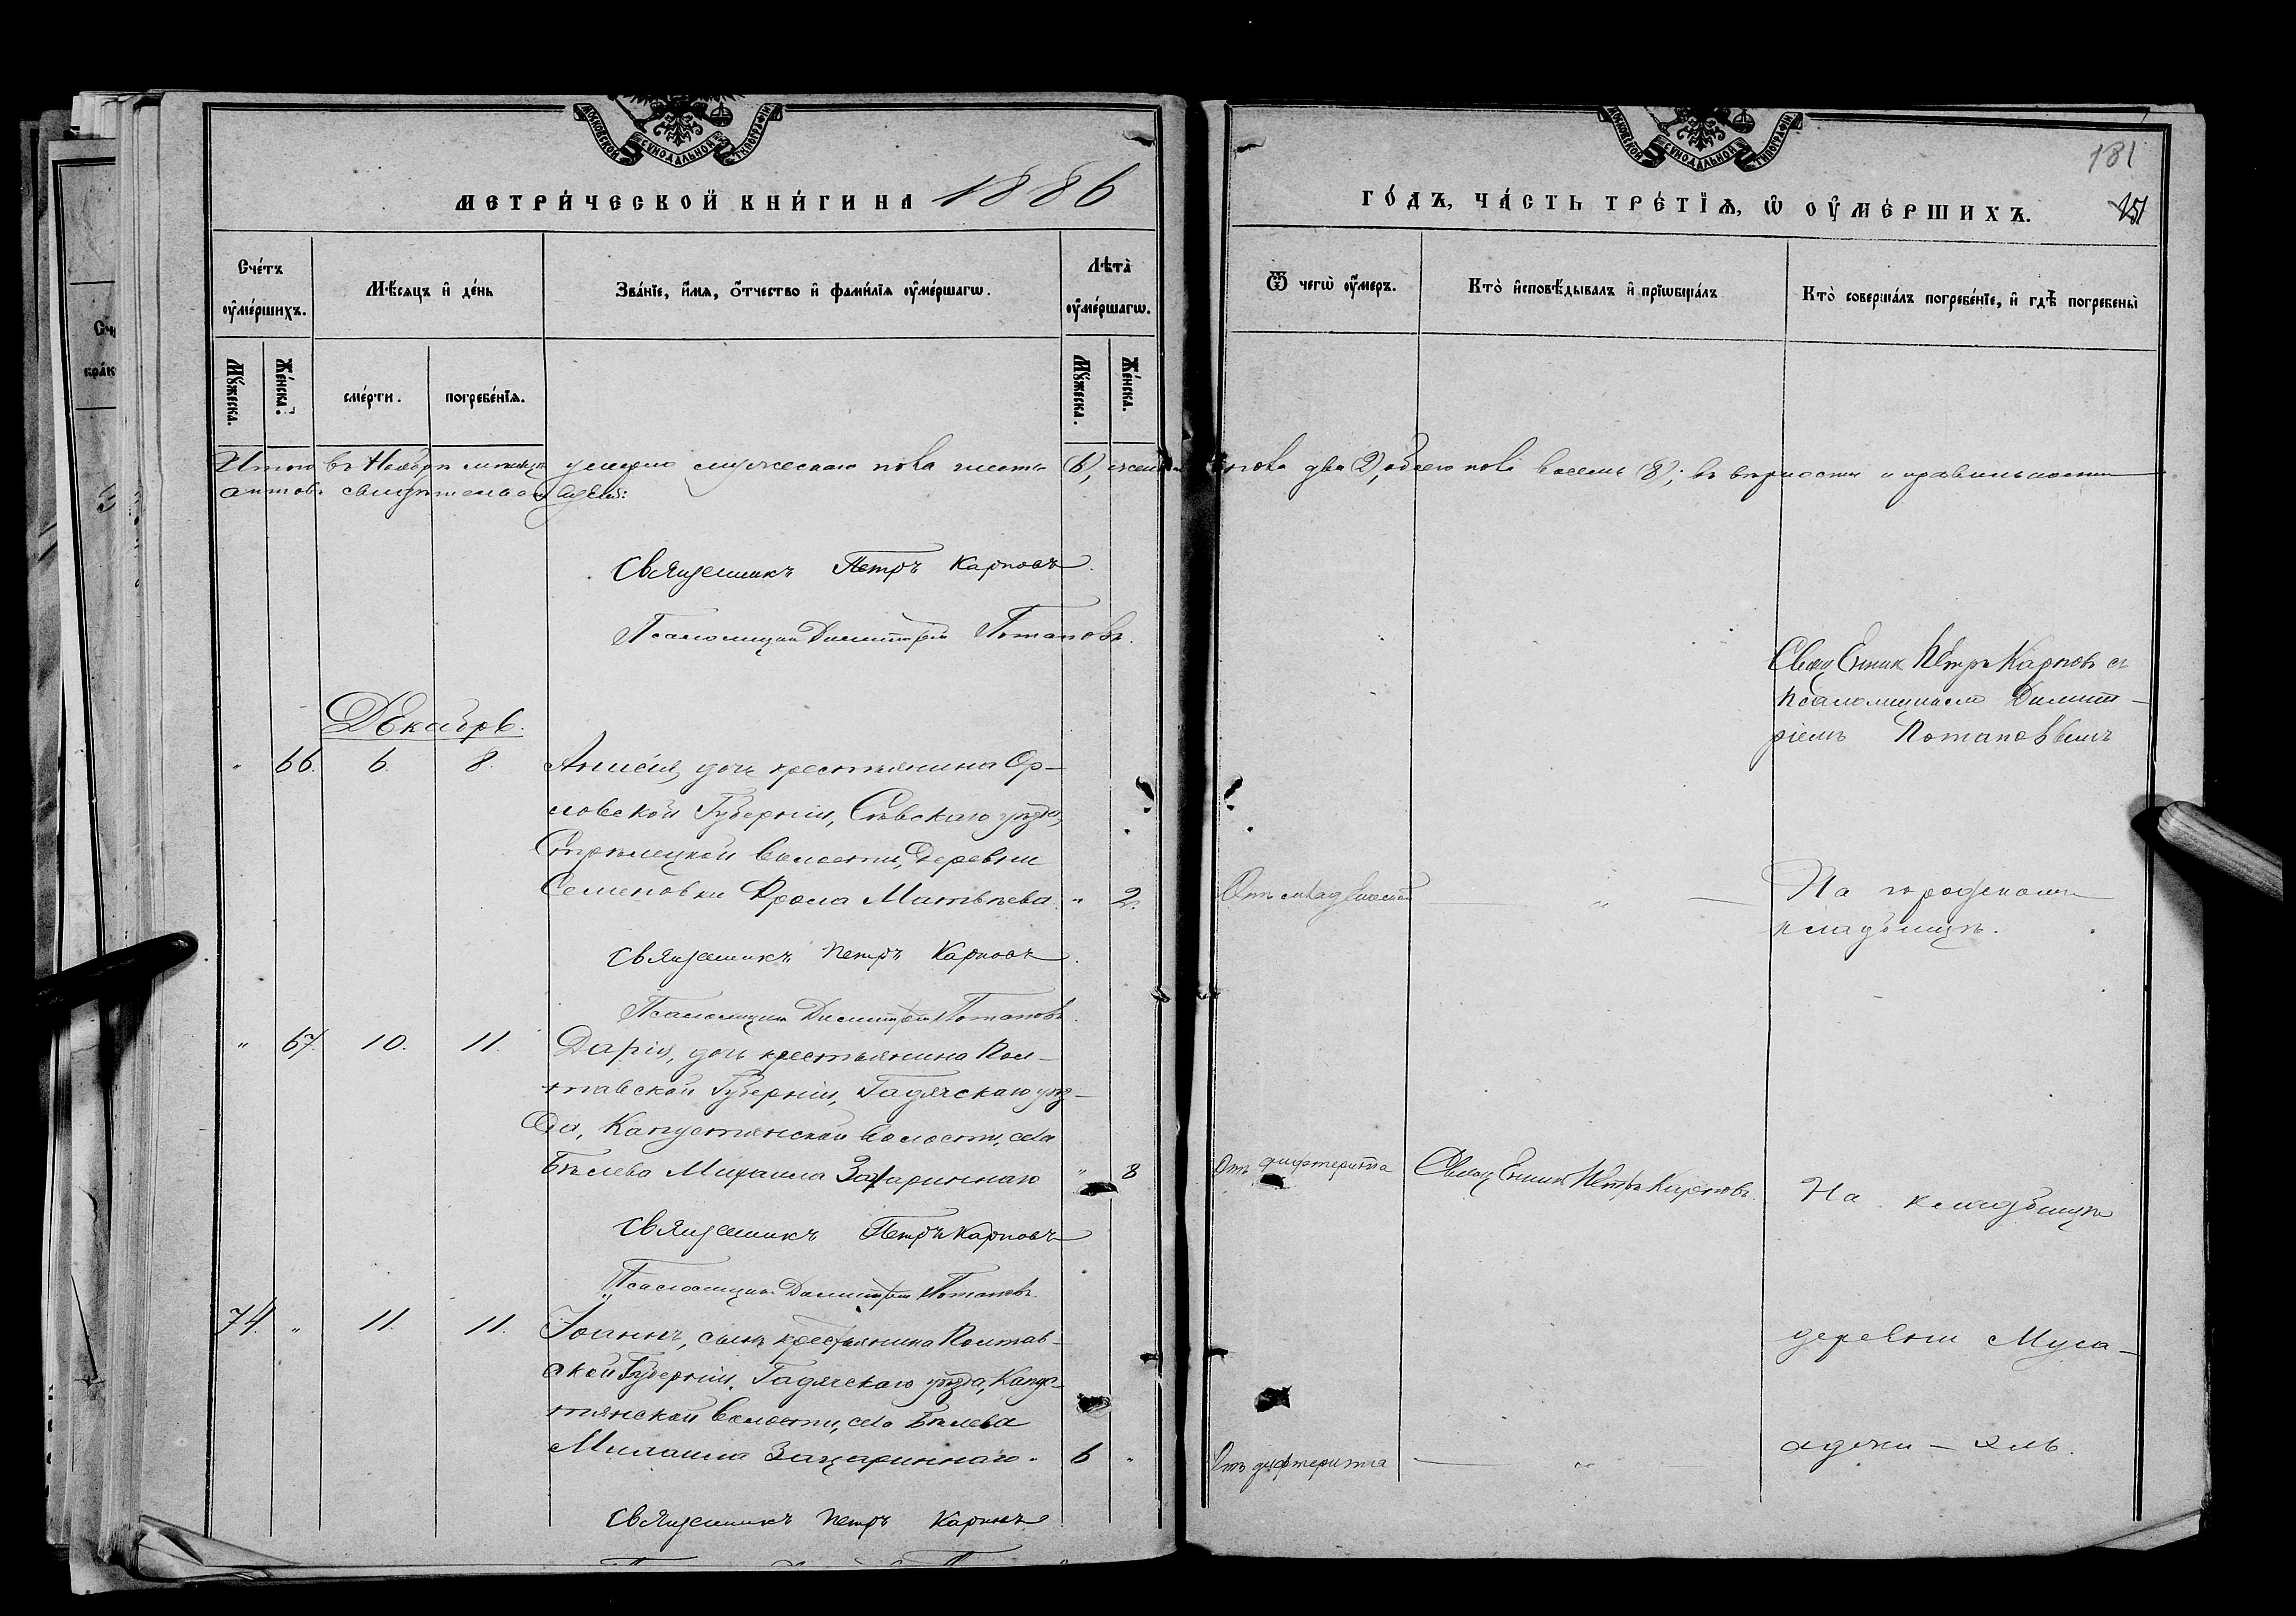 МОСКОВСКОЙ СѴНОДАЛЬНОЙ ТИПОГРАФІИ
МЕТРИ́ЧЕСКОЙ КНИ́ГИ НА 1886
Счётъ ᲂу҆ме́ршихъ.
Мꙋ́жеска.
Же́нска.
Мѣ́сяцъ и҆ де́нь
сме́рти.
погребе́нїѧ.
Зва́нїе, и҆́мѧ, ѻ҆́тчество и҆ фамилїѧ ᲂу҆ме́ршагѡ.
Лѣта̀ ᲂу҆ме́ршагѡ.
Мꙋ́жеска.
Же́нска.
Итого въ Ноябрѣ мѣсяцѣ умерло мужескаго пола шесть (6), женскаго пола два (2), обоего пола восемь (8); въ вѣрности и правильности
актовъ свидѣтельствуемъ:
Священникъ Петръ Карповъ.
Псаломщикъ Димитрій Потаповъ.
Декабрь.
" 66. 6. 8. Анисія, дочь крестьянина Ор-
ловской Губерніи, Сѣвскаго уѣзда,
Стрѣлецкой волости, деревни
Семеновки Фрола Матвѣева. " 2.
Священникъ Петръ Карповъ.
Псаломщикъ Димитрій Потаповъ.
" 67. 10. 11. Дарія, дочь крестьянина Пол-
тавской Губерніи, Гадячскаго уѣз-
да, Капустянской волости, села
Бѣлева Михаила Захариннаго " 8
Священникъ Петръ Карповъ
Псаломщикъ Димитрій Потаповъ.
74. " 11. 11. Іоаннъ, сынъ крестьянина Полтав-
ской Губерніи, Гадячскаго уѣзда, Капус-
тянской волости, села Бѣлева
Михаила Захариннаго. 6 "
Священникъ Петръ Карповъ
МОСКОВСКОЙ СѴНОДАЛЬНОЙ ТИПОГРАФІИ
181
ГО́ДЪ, ЧА́СТЬ ТРЕ́ТЇѦ, Ѡ҆ ОУ҆МЕ́РШИХЪ.
151
Ѿ чегѡ̀ ᲂу҆́меръ.
Кто̀ и҆сповѣ́дывалъ и҆ прїѡбща́лъ
Кто̀ соверша́лъ погребе́нїе, и҆ гдѣ̀ погребены̀
Священник Петръ Карповъ съ
псаломщикомъ Димит-
ріемъ Потаповымъ
Отъ младенческой " На городскомъ
кладбищѣ.
Отъ дифтерита Священник Петръ Карповъ. На кладбищѣ
деревни Муса-
Отъ дифтерита "